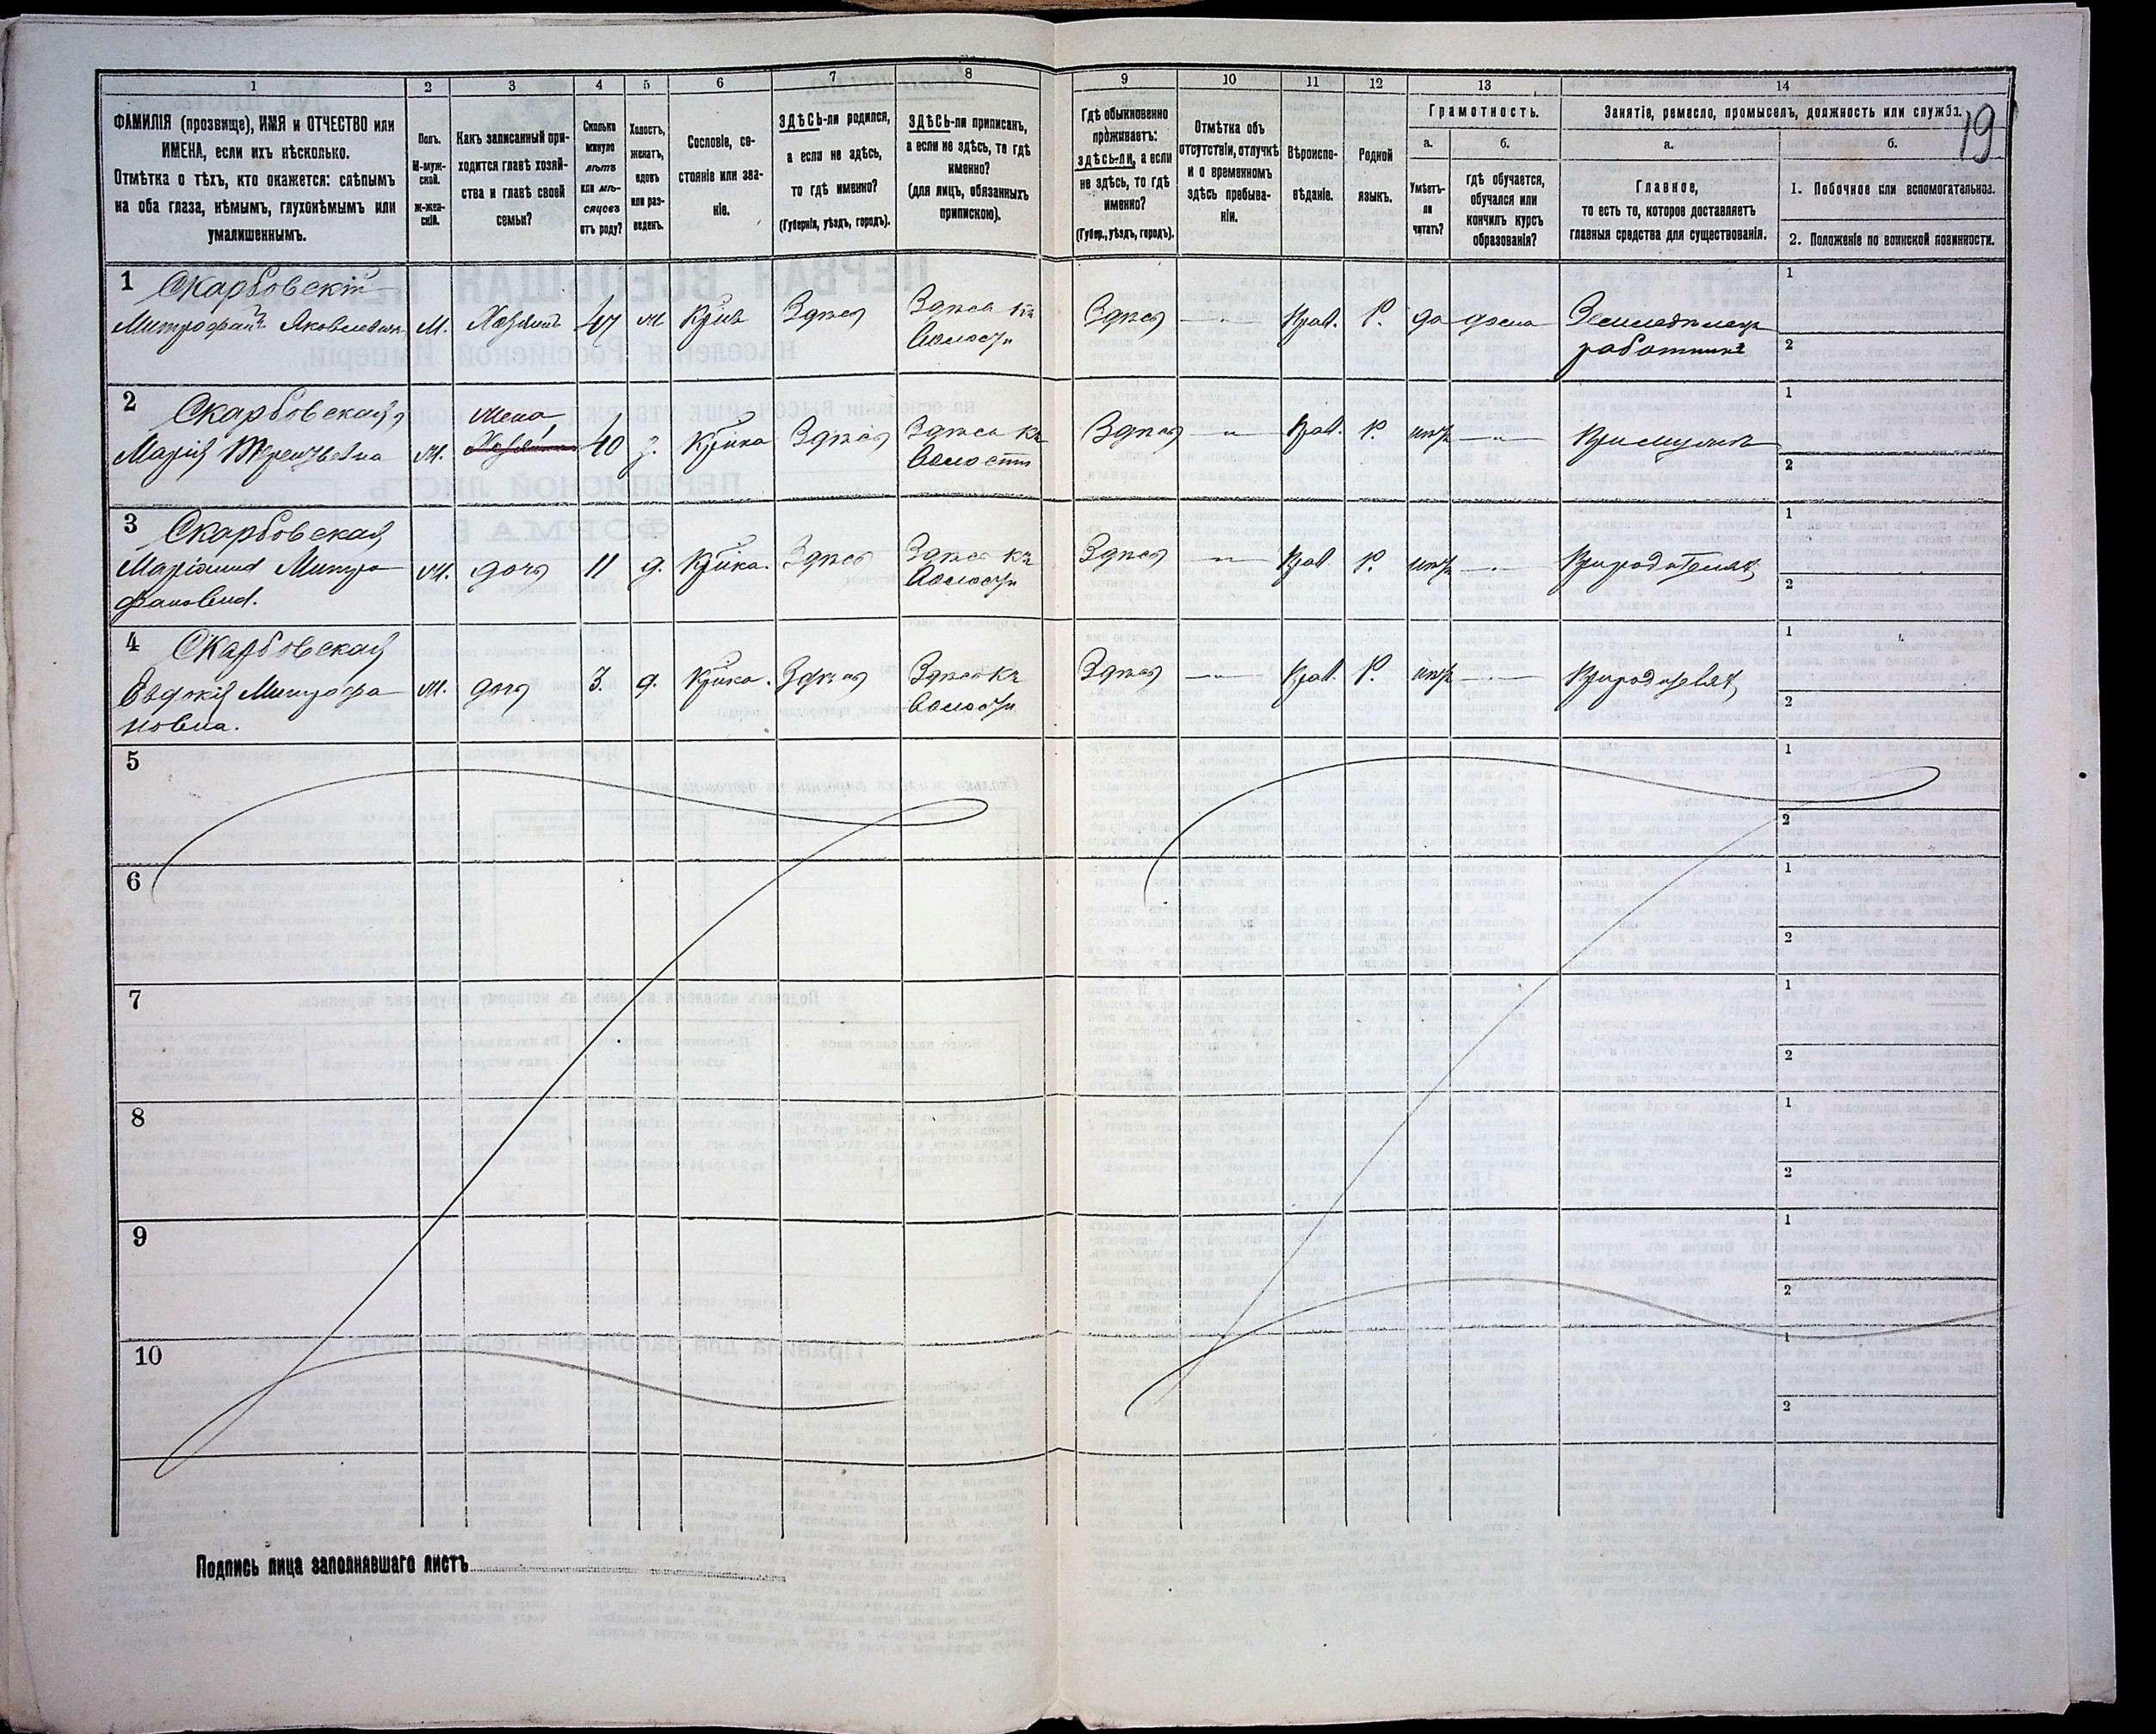 1 2 3 4 5 6 7 8 9 10 11 12 13 14
ФАМИЛІЯ (прозвище), ИМЯ и ОТЧЕСТВО или
ИМЕНА, если ихъ нѣсколько.
Отмѣтка о тѣхъ, кто окажется: слѣпымъ
на оба глаза, нѣмымъ, глухонѣмымъ или
умалишеннымъ.
Полъ.
М-муж-
ской.
ж-жен-
скій.
Какъ записанный при-
ходится главѣ хозяй-
ства и главѣ своей
семьи?
Сколько
минуло
лѣтъ
или мѣ-
сяцевъ
отъ роду?
Холостъ,
женатъ,
вдовъ
или раз-
веденъ.
Сословіе, со-
стояніе или зва-
ніе.
ЗДѢСЬ-ли родился,
а если не здѣсь,
то гдѣ именно?
(Губернія, уѣздъ, городъ).
ЗДѢСЬ-ли приписанъ,
а если не здѣсь, то гдѣ
именно?
(для лицъ, обязанныхъ
припискою).
Гдѣ обыкновенно
проживаетъ:
здѣсь-ли, а если
не здѣсь, то гдѣ
именно?
(Губер., уѣздъ, городъ).
Отмѣтка объ
отсутствіи, отлучкѣ
и о временномъ
здѣсь пребыва-
ніи.
Вѣроиспо-
вѣданіе.
Родной
языкъ.
Грамотность.
а.
Умѣетъ-
ли
читать?
б.
гдѣ обучается,
обучался или
кончилъ курсъ
образованія?
Занятіе, ремесло, промыселъ, должность или служба.
19
а.
Главное,
то есть то, которое доставляетъ
главныя средства для существованія.
б.
1. Побочное или вспомогательное.
2. Положеніе по воинской повинности.
1 Скарбовскій
Митрофанъ Яковлевичъ М. Хозяинъ 47 Здѣсь Здѣсь къ Здѣсь Прав. Р. да дома
волости работникъ
1
2
2 Скарбовская
Марія Жена 40 Здѣсь Здѣсь къ Здѣсь Прав. Р. При мужѣ
волости
1
2
3 Скарбовская
Митро- дочь 11 д. Здѣсь Здѣсь къ Здѣсь Прав. Р. При родителях
фановна. волости
1
2
4 Скарбовская
Евдокія Митрофа- дочь 3. д. Здѣсь Здѣсь къ Здѣсь Прав. Р. При родителях
новна. волости
1
2
5
1
2
6
1
2
7
1
2
8
1
2
9
1
2
10
1
2
Подпись лица заполнявшаго листъ